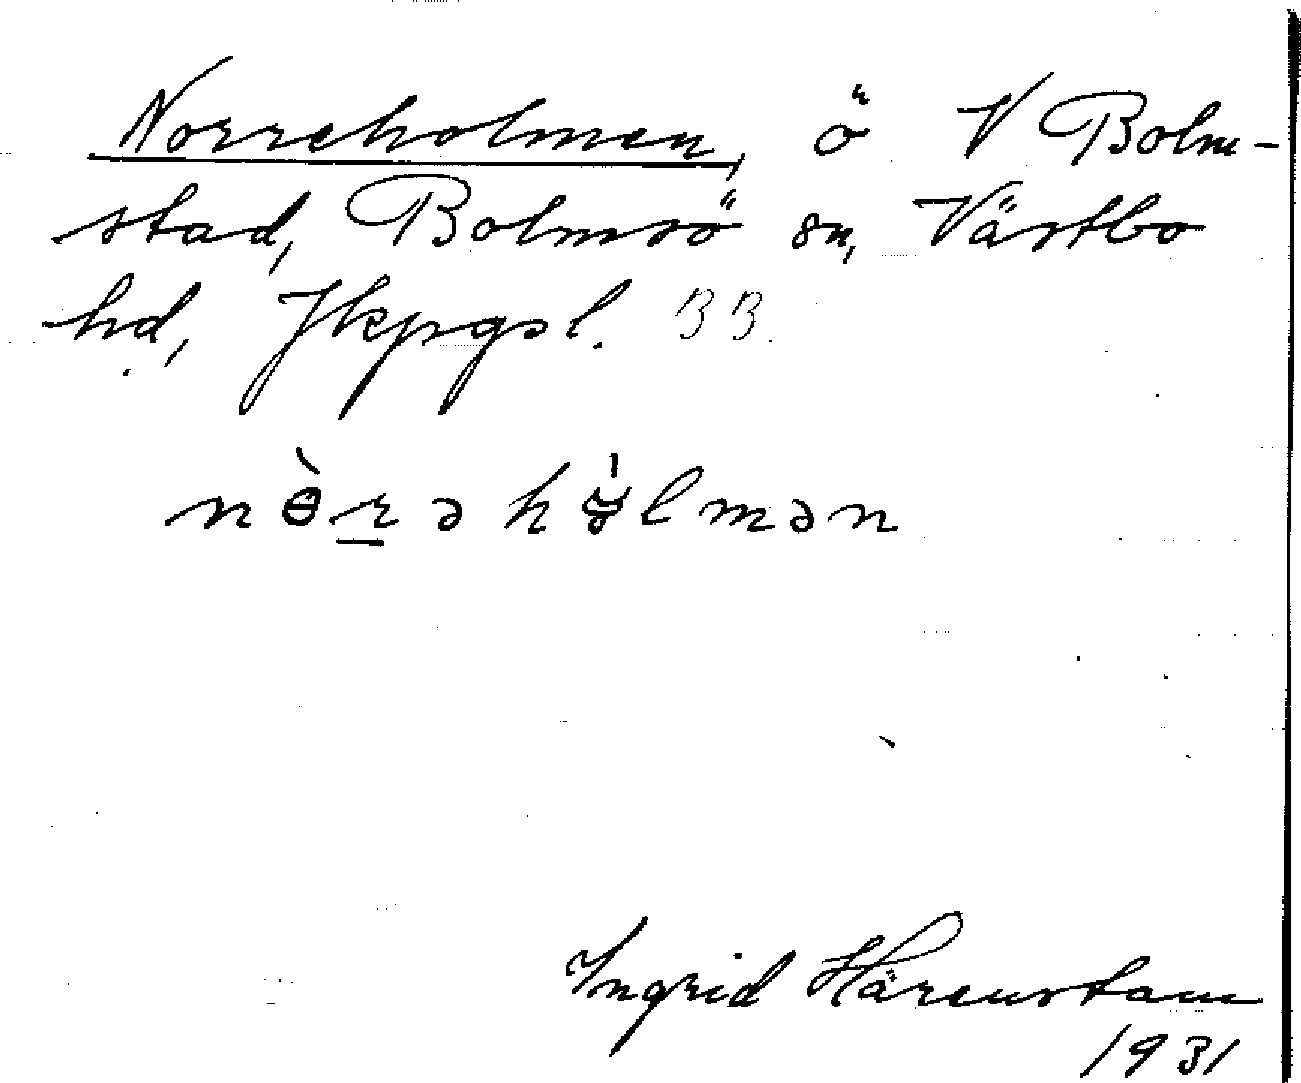 Norreholmen, ö V Bolm-
stad, Bolmsö sn, Västbo
hd, Jkpgsl. 33
nɵ̀rə hɵ̍lmən
Ingrid Härenstam
1931